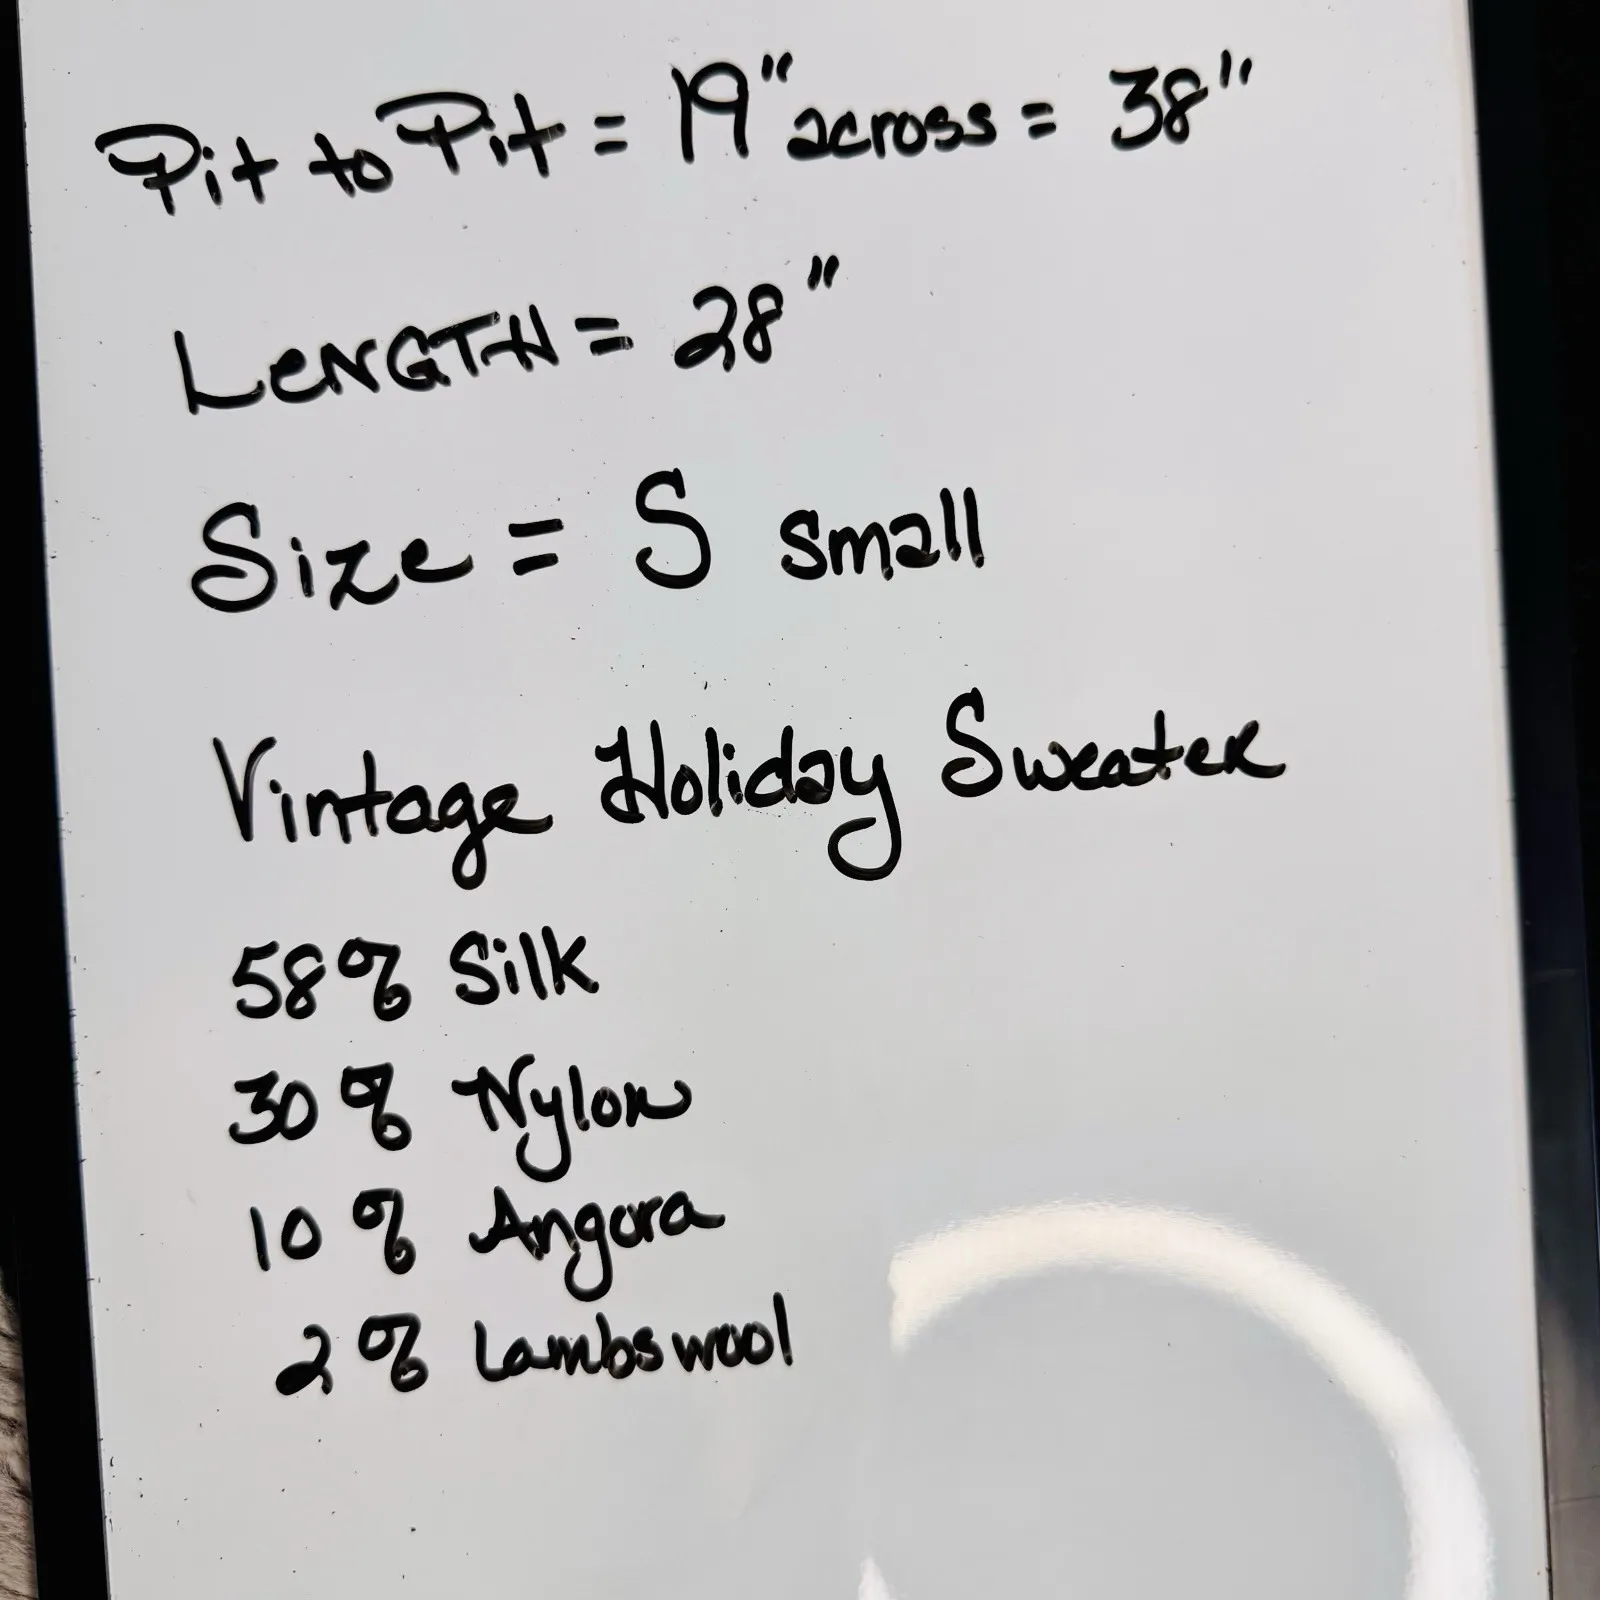 Pit to Pit = 19" across = 38"
LENGTH = 28"
Size = S small
Vintage Holiday Sweater
58% Silk
30% Nylon
10% Angora
2% Lambswool